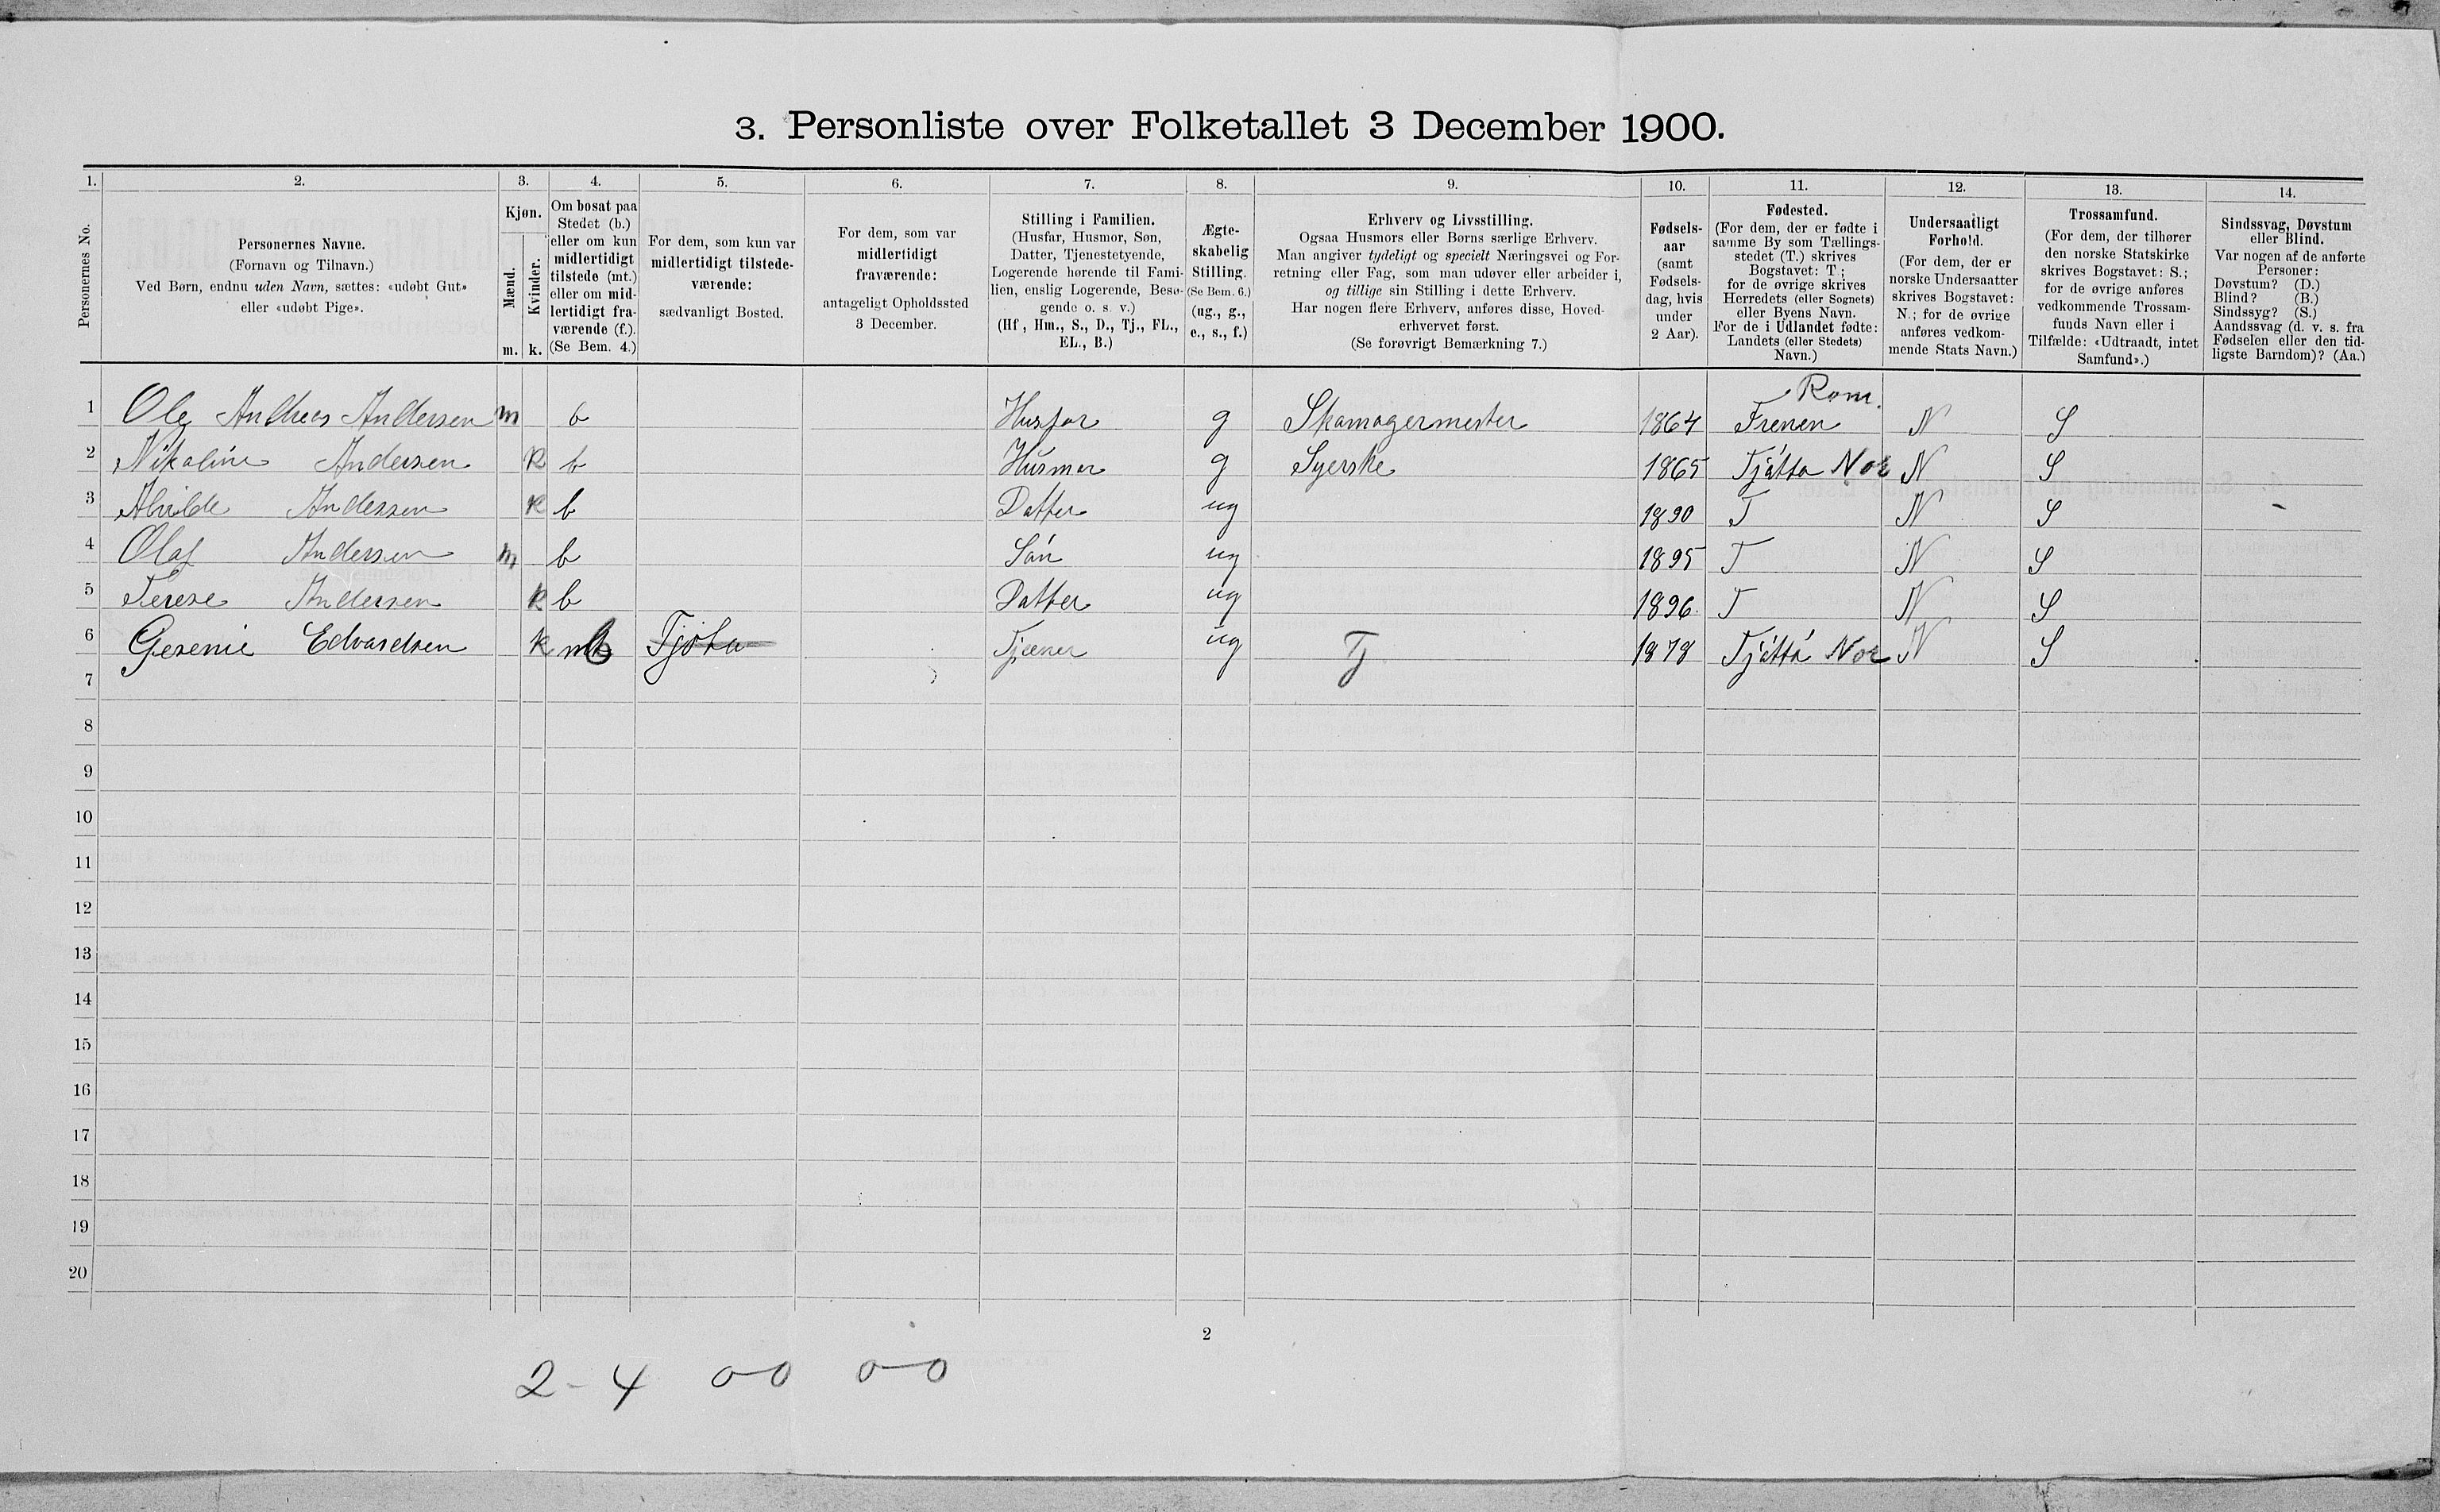 3. Personliste over Folketallet 3 December 1900.
1. 2. 3. 4. 5. 6. 7. 8. 9. 10. 11. 12. 13. 14.
Personernes No.
Personernes Navne.
(Fornavn og Tilnavn.)
Ved Børn, endnu uden Navn, sættes: «udøbt Gut»
eller «udøbt Pige».
Kjøn.
Mænd.
Kvinder.
m. k.
Om bosat paa
Stedet (b.)
eller om kun
midlertidigt
tilstede (mt.)
eller om mid-
lertidigt fra-
værende (f.).
(Se Bem. 4.)
For dem, som kun var
midlertidigt tilstede-
værende:
sædvanligt Bosted.
For dem, som var
midlertidigt
fraværende:
antageligt Opholdssted
3 December.
Stilling i Familien.
(Husfar, Husmor, Søn,
Datter, Tjenestetyende,
Logerende hørende til Fami-
lien, enslig Logerende, Besø-
gende o. s. v.)
(Hf, Hm., S., D., Tj., FL.,
EL., B.)
Ægte-
skabelig
Stilling.
(Se Bem. 6.)
(ug., g.,
e., s., f.)
Erhverv og Livsstilling.
Ogsaa Husmors eller Børns særlige Erhverv.
Man angiver tydeligt og specielt Næringsvei og For-
retning eller Fag, som man udøver eller arbeider i,
og tillige sin Stilling i dette Erhverv.
Har nogen flere Erhverv, anføres disse, Hoved-
erhvervet først.
(Se forøvrigt Bemærkning 7.)
Fødsels-
aar
(samt
Fødsels-
dag, hvis
under
2 Aar).
Fødested.
(For dem, der er fødte i
samme By som Tællings-
stedet (T.) skrives
Bogstavet: T;
for de øvrige skrives
Herredets (eller Sognets)
eller Byens Navn.
For de i Udlandet fødte:
Landets (eller Stedets)
Navn.)
Undersaatligt
Forhold.
(For dem, der er
norske Undersaatter
skrives Bogstavet:
N.; for de øvrige
anføres vedkom-
mende Stats Navn.)
Trossamfund.
(For dem, der tilhører
den norske Statskirke
skrives Bogstavet: S.;
for de øvrige anføres
vedkommende Trossam-
funds Navn eller i
Tilfælde: «Udtraadt, intet
Samfund».)
Sindssvag, Døvstum
eller Blind.
Var nogen af de anførte
Personer:
Døvstum? (D.)
Blind? (B.)
Sindssyg? (S.)
Aandssvag (d. v. s. fra
Fødselen eller den tid-
ligste Barndom)? (Aa.)
Rom.
1 Ole Andreas Andersen m b Husfar g Skomagermester 1864 Frenen N S
2 Nikoline Andersen k b Husmor g Syerske 1865 Tjøtta Nor N S
3 Alvilde Andersen k b Datter ug 1890 T N S -
4 Olaf Andersen m b Søn ug 1895 T N S
5 Terese Andersen k b Datter ug 1896 T N S
6 Gesenie Edvardsen k b Tjøta Tjener ug Tj 1878 Tjøttå Nor N S
7
8
9
10
11
12
13
14
15
16
17
18
19
20
2
2-4 0-0 0-0